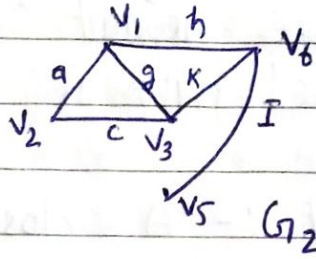 V1 h V6
a g k I
V2 c V3
V5
G2